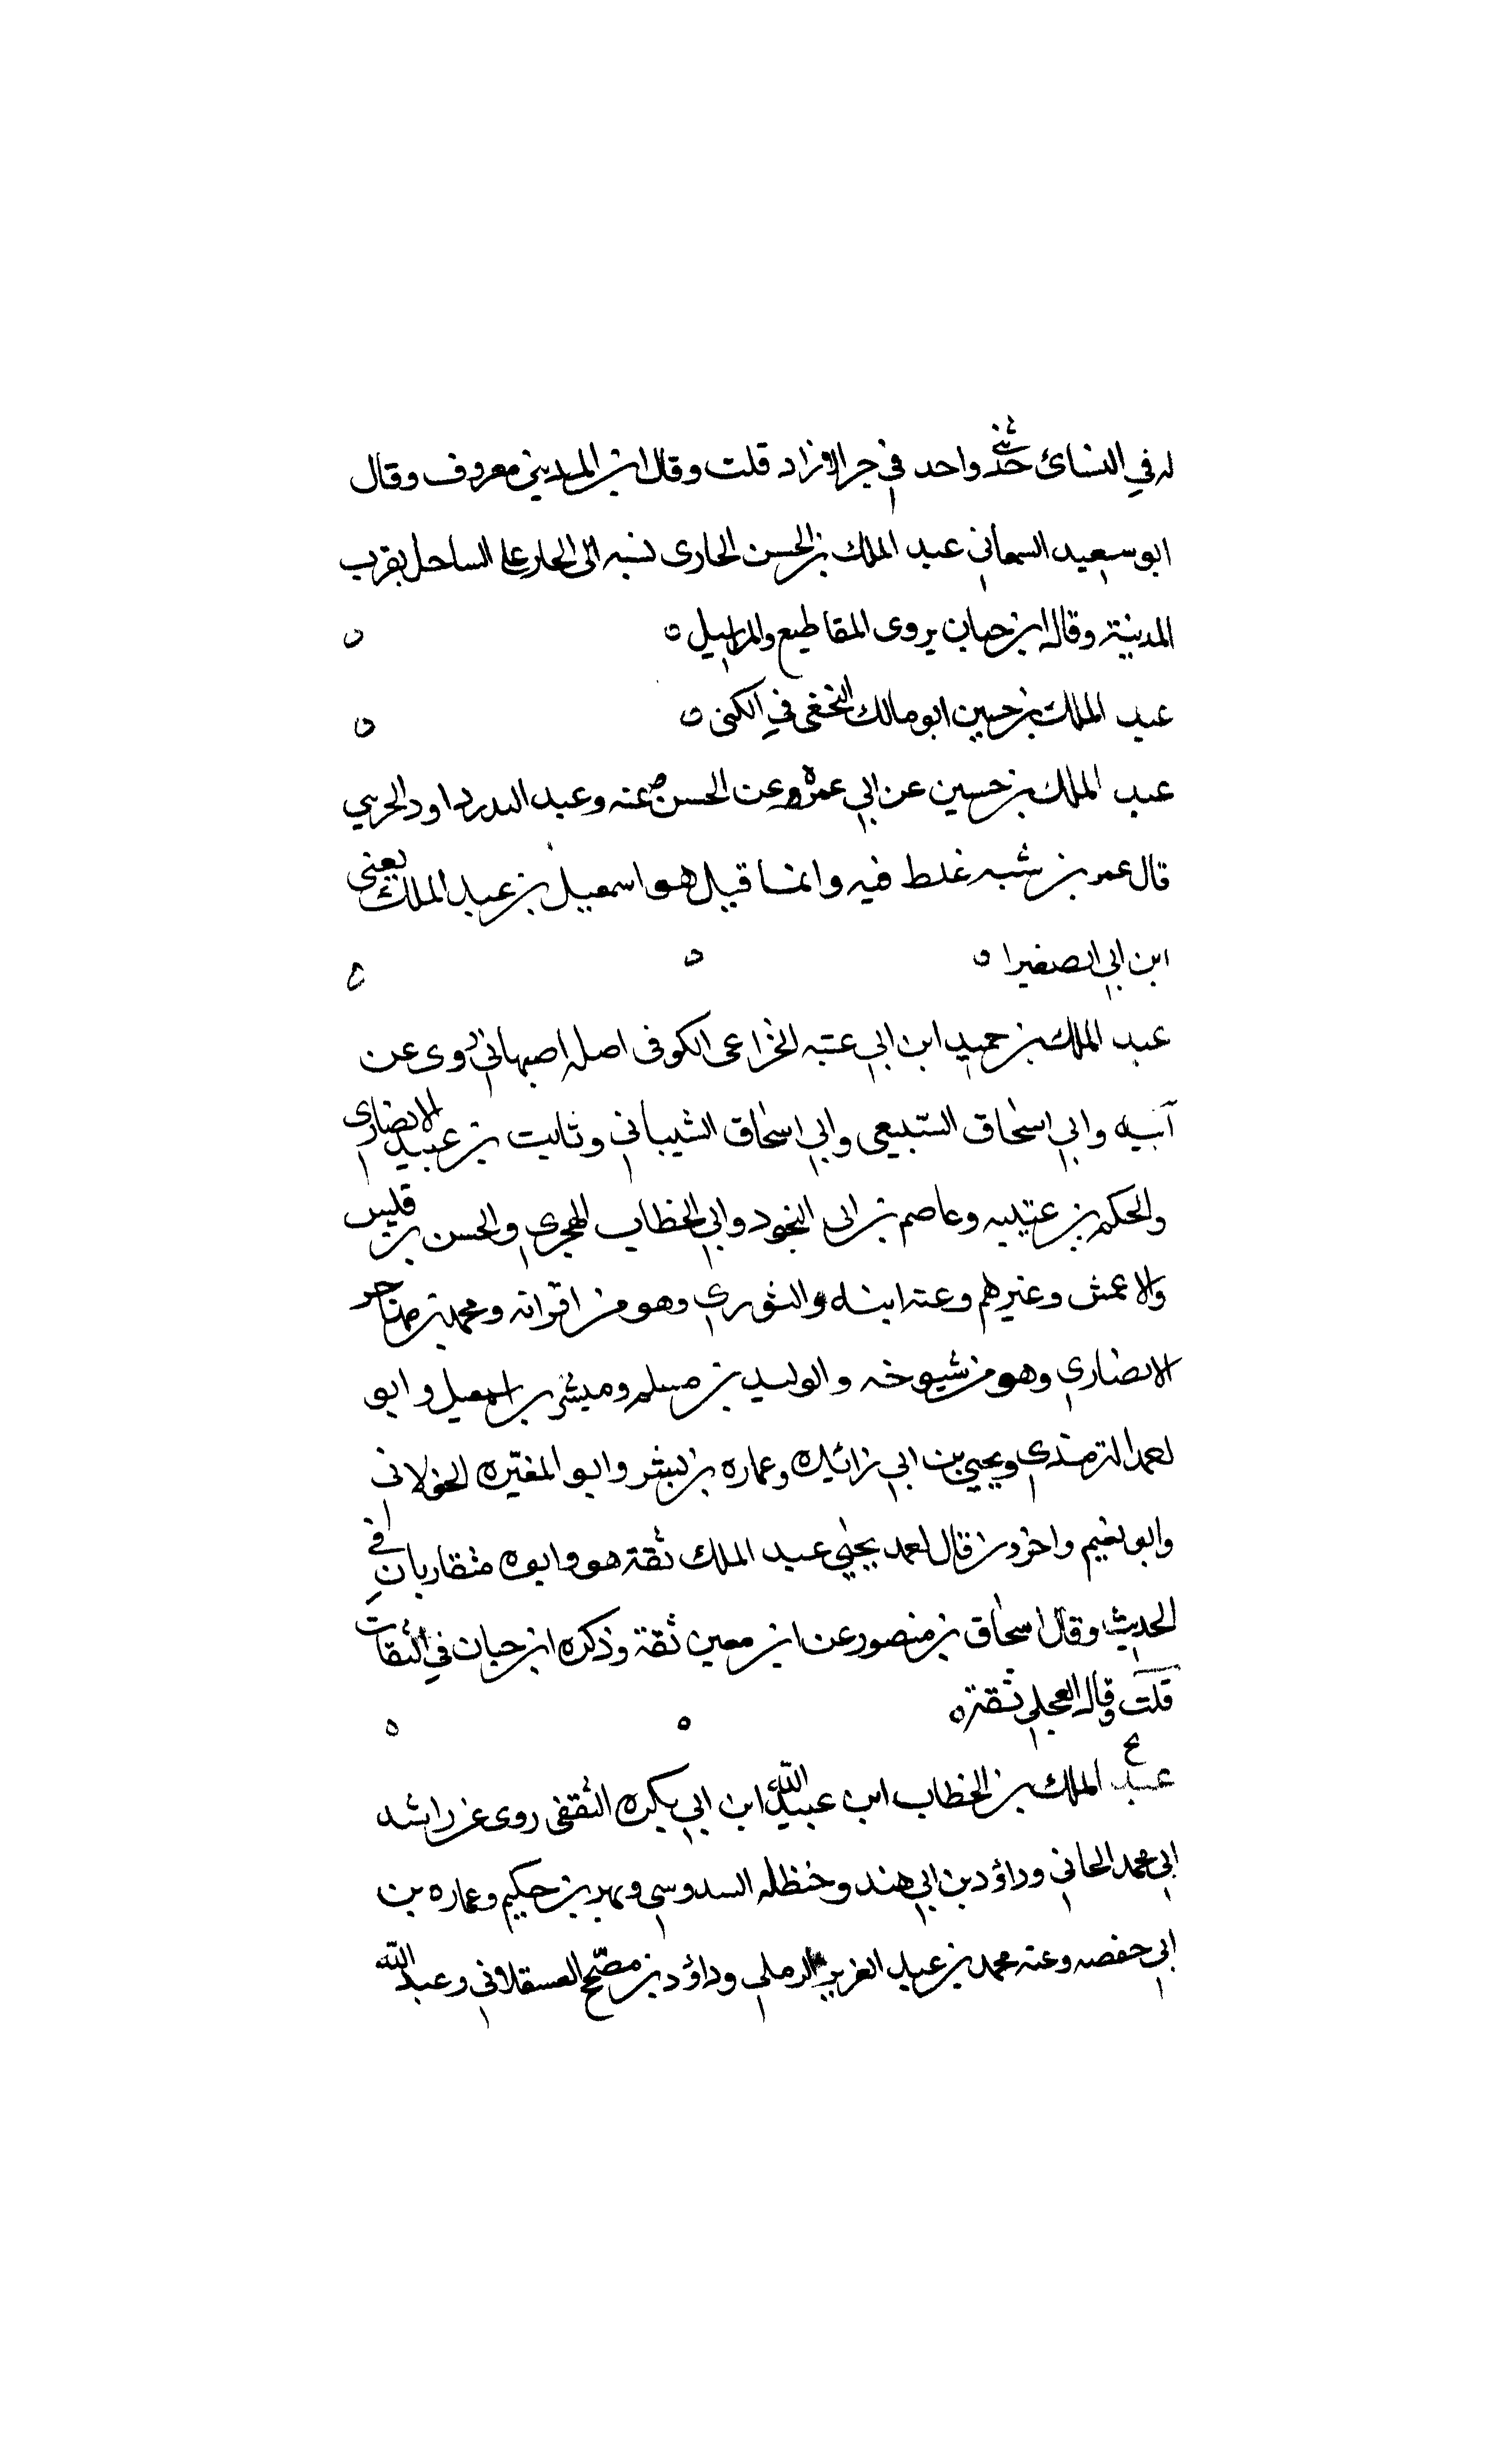 له في النسائ حديث واحد في جر الازاد قلت وقال ابن المديني معروف وقال
ابو سعيد السمعاني عبد الملك بن الحسن الجارى نسبه الى الجار على الساحل بقرب
المدينة وقال ابن حبان يروى المقاطيع والمراسيل
عبد الملك بن حسين ابو مالك النخعي في الكنى
عبد الملك بن حسين عن ابي عمره وعن الحسن وعنه وعبد الله بن داود الحربي
قال عمر بن شبه غلط فيه وانما قيل هو اسمعيل بن عبد الملك يعني
ابن ابي الصغيرا
عبد الملك بن حميد ابن ابي عتبه الخزاعى الكوفى اصله اصبهاني روى عن
ابيه وابي اسحاق السبيعى وابي اسحاق الشيبانى وثابت بن عبيد الانصارى
والحكم بن عتيبه وعاصم بن ابى النجود وابي الخطاب الهجري والحسن بن قيس
والاعمش وغيرهم وعنه ابناه والثوري وهو من اقرانه ومحمد بن
الانصاري وهو من شيوخه والوليد بن مسلم ومبشر بن اسمعيل وابو
احمد الترمذي ويحيى بن ابي زائده وعماره بن بشر وابو المغيره الخولانى
وابو نعيم واخرون قال احمد يحيى عبد الملك ثقة هو وابوه متقاربان في
الحديث وقال اسحاق بن منصور عن ابن معين ثقة وذكره ابن حبان في الثقات
قلت وقال العجلي ثقة
عبد الملك بن الخطاب ابن عبيد الله ابن ابي بكره الثقفى روى عن راشد
ابي محمد الحماني وداؤد بن ابي هند وحنظله السدوسي وبهز بن حكيم وعماره بن
ابي حفصه وعنه محمد بن عبد العزيز الرملي وداؤد بن مصحح العسقلاني وعبد الله